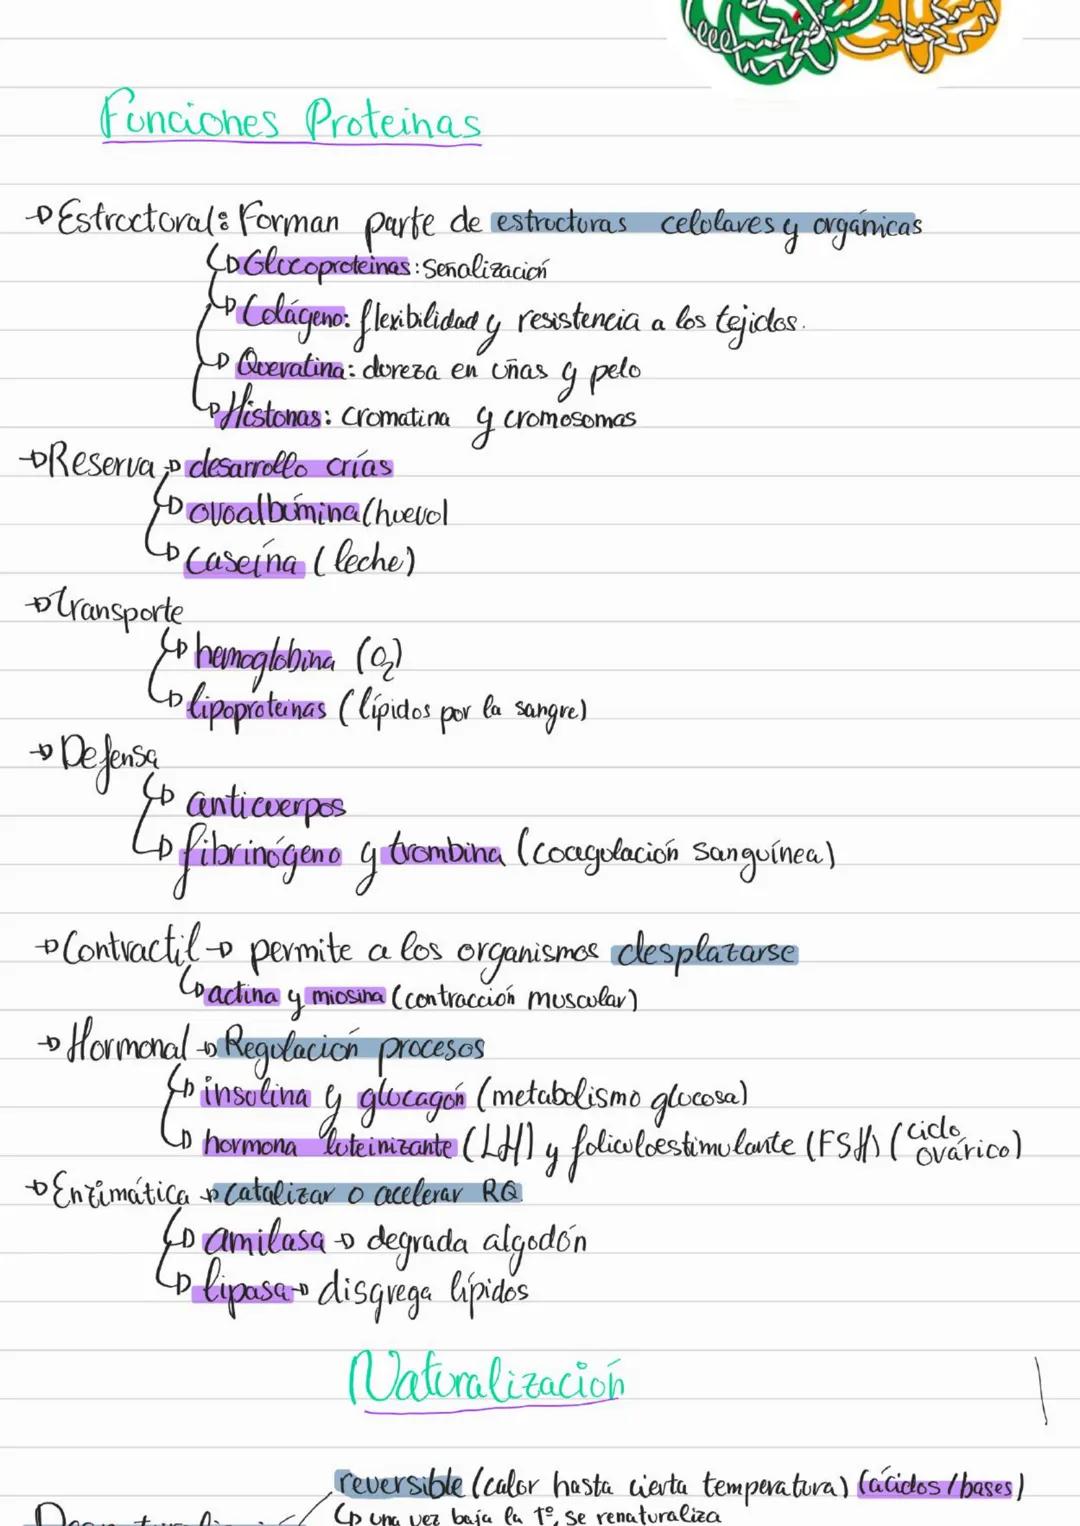 Funciones Proteinas
→ Estructural: Forman parte de estructuras celulares y orgánicas
↳ Glucoproteinas: Señalización
↳ Colágeno: flexibilidad y resistencia a los tejidos.
↳ Queratina: dureza en uñas y pelo
↳ Histonas: Cromatina y cromosomas
→ Reserva → desarrollo crías
↳ ovoalbúmina (huevo)
↳ Caseína (leche)
→ Transporte
↳ hemoglobina (O₂)
↳ lipoproteinas (lípidos por la sangre)
→ Defensa
↳ anticuerpos
↳ fibrinógeno y trombina (coagulación sanguínea)
→ Contractil → permite a los organismos desplazarse
↳ actina y miosina (contracción muscular)
→ Hormonal → Regulación procesos
↳ insulina y glucagón (metabolismo glucosa)
↳ hormona luteinizante (LH) y foliculoestimulante (FSH) (ciclo ovárico)
→ Enzimática → Catalizar o acelerar RQ
↳ amilasa → degrada algodón
↳ lipasa → disgrega lípidos
Naturalización
reversible (calor hasta cierta temperatura) (ácidos/bases)
↳ una vez baja la Tº, se renaturaliza